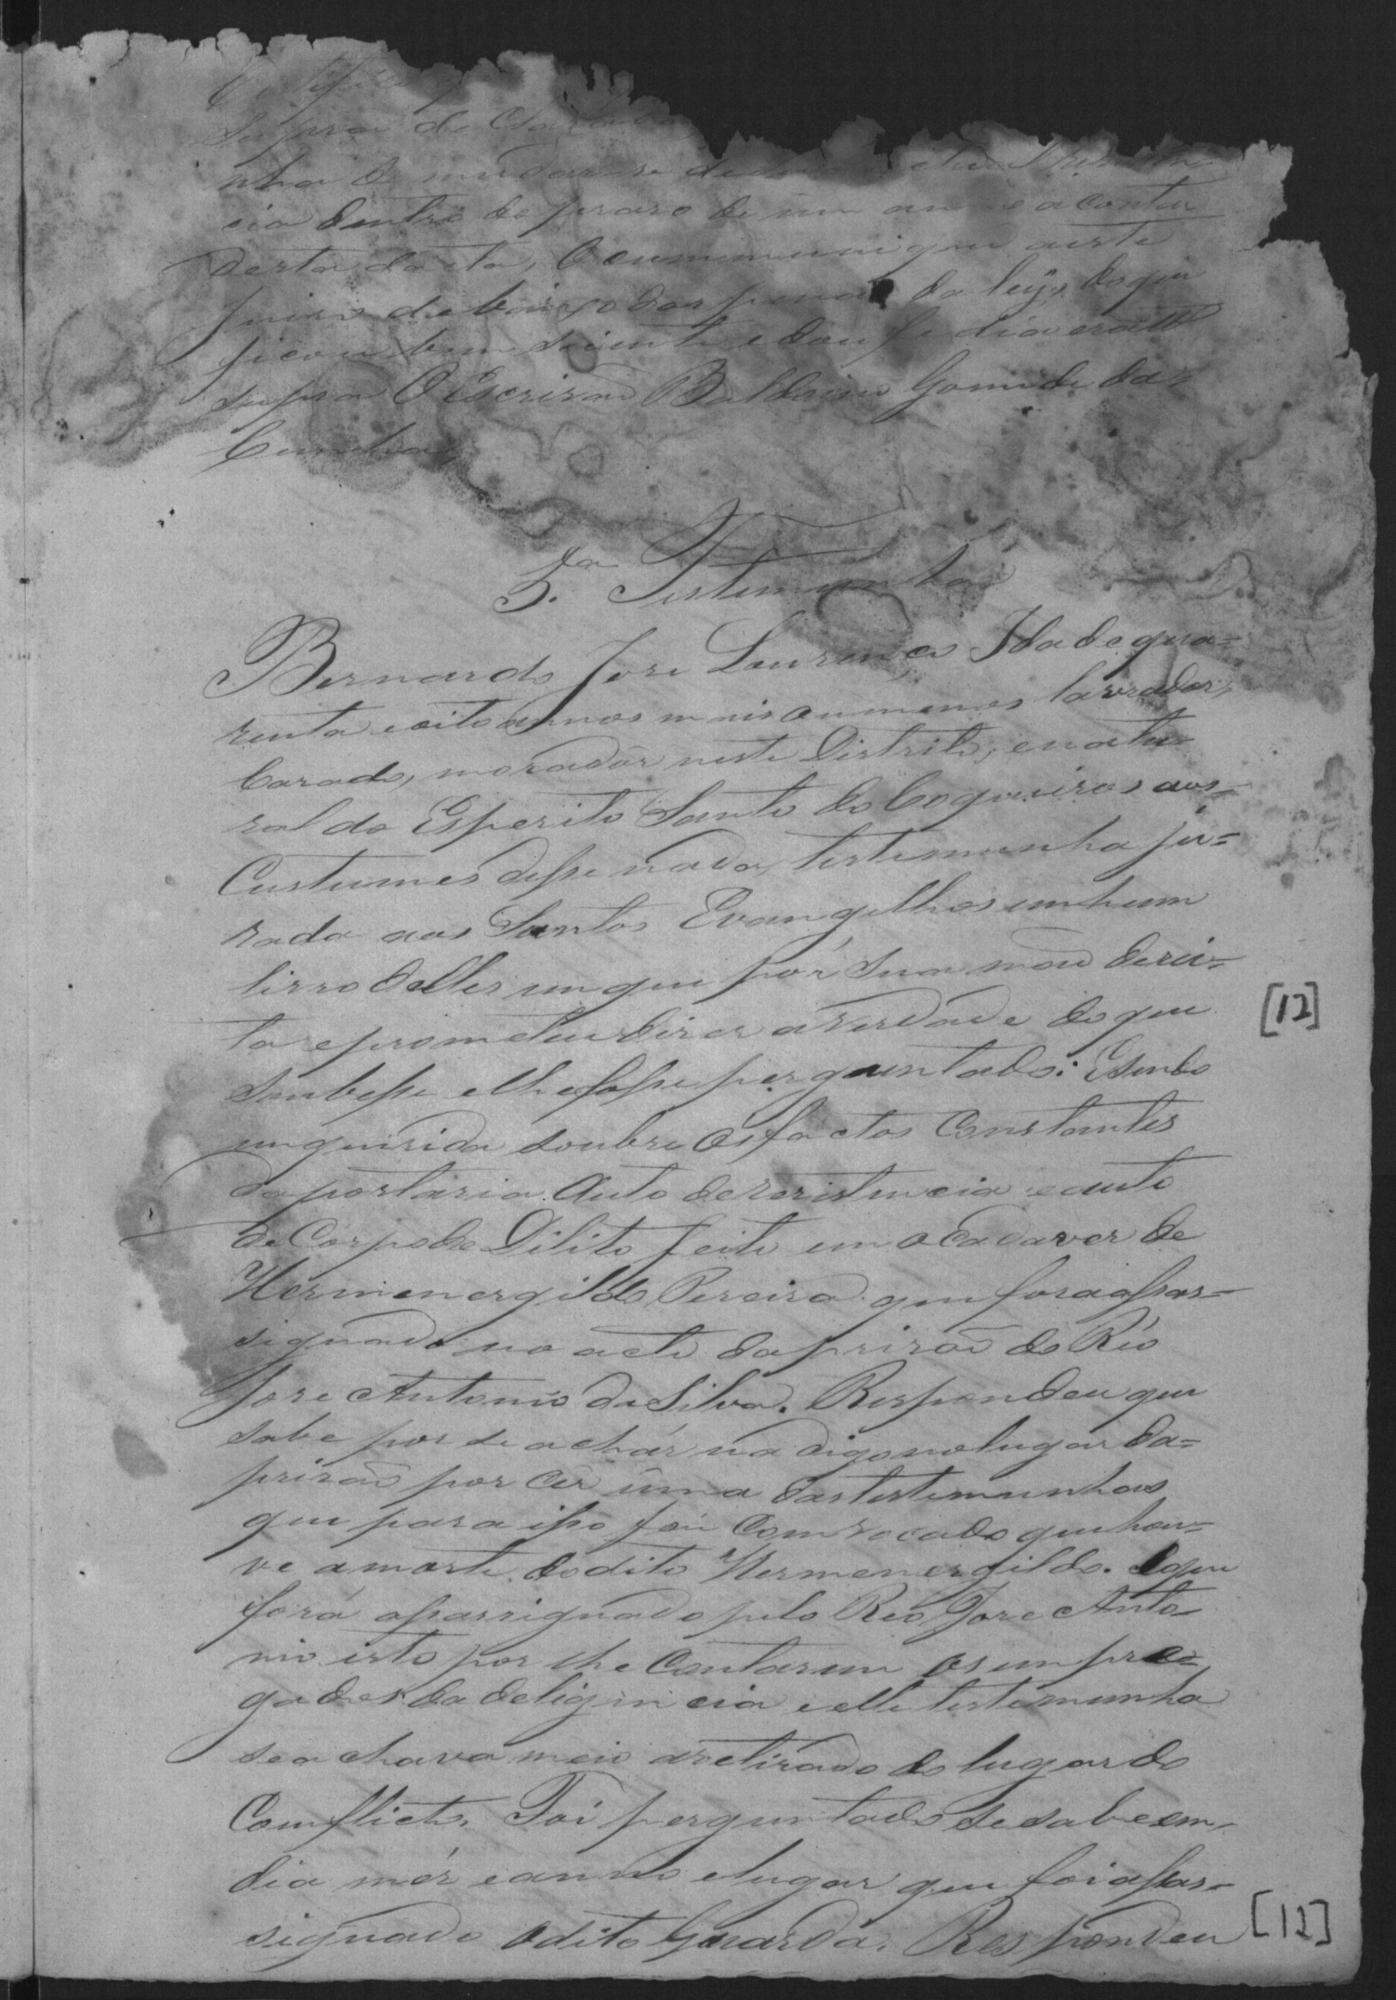 supra de
nha de mudar-se
cia dentro do praso de um anno a contar
desta data, O cummunique a este
Juiso debaixo das penas da ley, do que
ficou bem sciente e dou fe dia era ett
supra O Escrivaõ Balduino Gomide da
Cunha
5.ª Testemunha
Bernardo Jose Lourenço Idade qua=
renta e oito annos mais ou menos lavrador,
Casado, morador neste Distrito, e natu=
ral do Esperito Santo do Coqueiros aos
Custumes disse nada, testemunha ju=
rada aos Santos Evangelhos em hum
livro delles em que pôr sua maõ derei=
ta e prometeu diser a verdade do que
soubesse e lhe fosse perguntado: Esendo
enquirida soubre os factos Constantes
da portaria. Auto de resistencia e auto
de Corpo de Dilito feito em o Cadaver de
Hermenergildo Pereira que fora assas=
signado no acto da prisaõ do Réo
Jose Antonio da Silva. Respondeu que
sabe por se achár na digo no lugar da=
prisaõ por cêr uma das testemunhas
que para isso foi comvocado que hou=
ve a morte do dito Hermenergildo. E que
fora assassignado pelo Reo Jose Anto=
nio isto por lhe Contarem os empre=
gados da deligencia e elle testemunha
se achava meio aretirado do lugar do
Comflicto, Foi perguntado se sabe em
dia mêz e anno e lugar que foi assas=
signado o dito Guarda. Respondeu
[12]
[12]